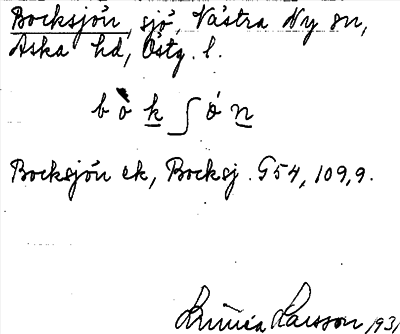 Bocksjön, sjö, Västra Ny sn,
Aska hd, Östg. l.
b ò k ʃ ó n
Bocksjön ek, Bocksj. G54, 109,9.
Linnéa Larsson 1931